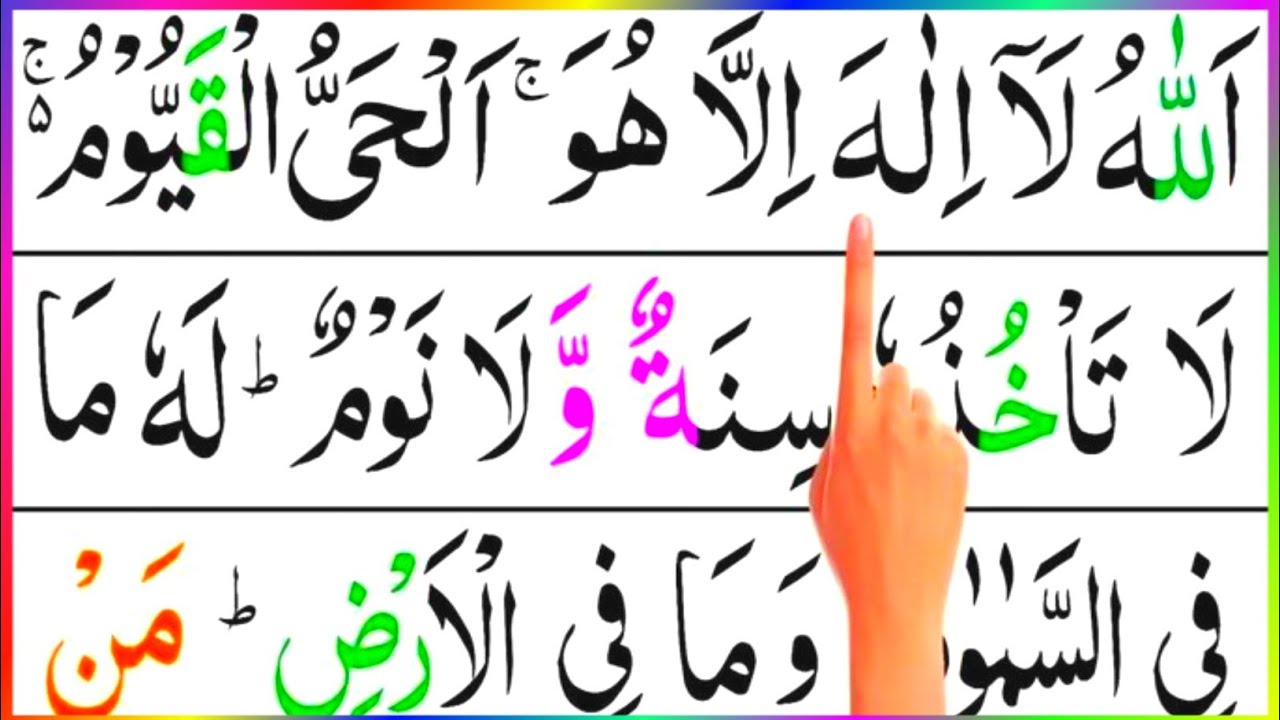 اَللّٰهُ لَاۤ اِلٰهَ اِلَّا هُوَ ۚ اَلْحَیُّ الْقَیُّوْمُ ۚ۵
لَا تَاْخُذُهٗ سِنَةٌ وَّلَا نَوْمٌ ؕ لَهٗ مَا
فِی السَّمٰوٰتِ وَمَا فِی الْاَرْضِ ؕ مَنْ